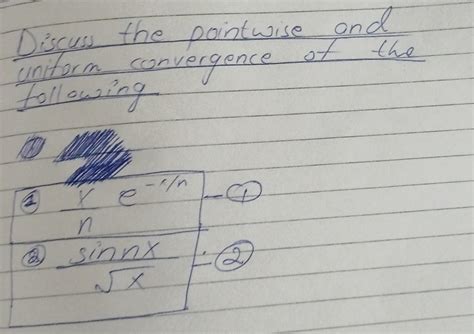 Discuss the pointwise and
uniform convergence of the
following
① x/n e^-x/n - ①
② sin nx/√x : ②